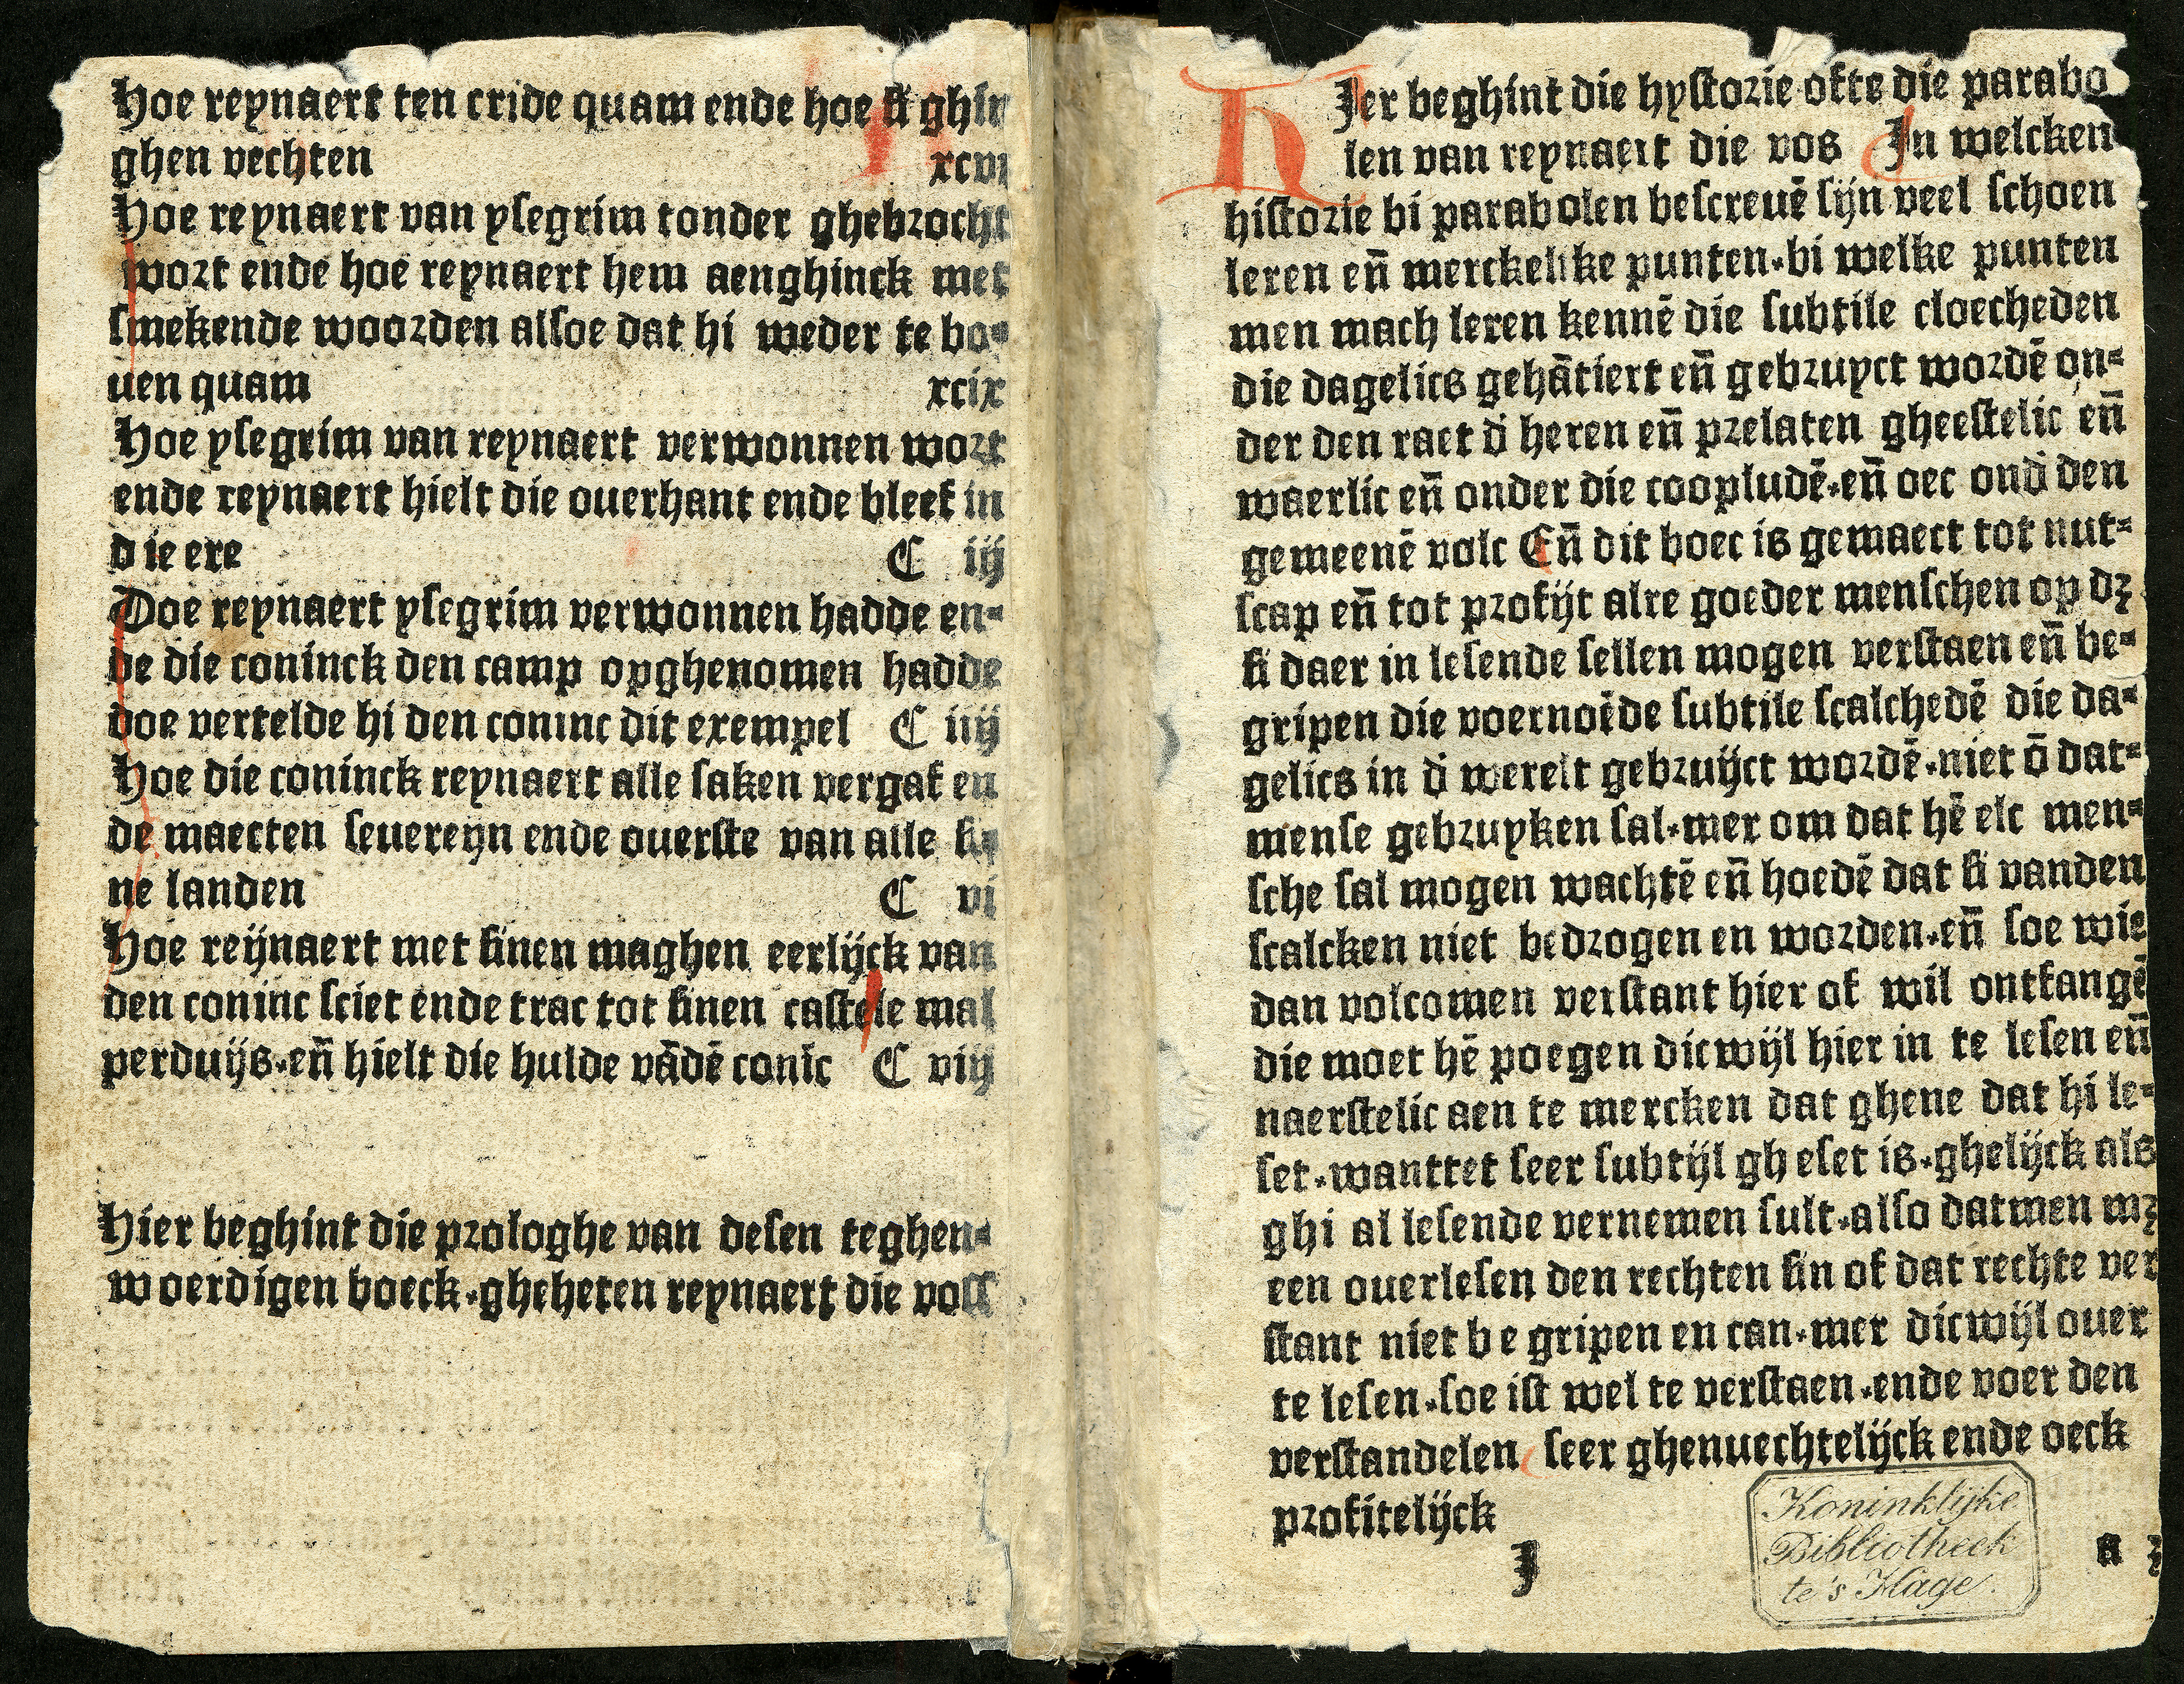 Hoe reynaert ten cride quam ende hoe si ghin
ghen vechten xcvi
Hoe reynaert van ysegrim tonder ghebrocht
wort ende hoe reynaert hem aenghinck met
smekende woorden alsoe dat hi weder te bo=
uen quam xcix
Hoe ysegrim van reynaert verwonnen wort
ende reynaert hielt die ouerhant ende bleef in
die ere C iij
Doe reynaert ysegrim verwonnen hadde en=
de die coninck den camp opghenomen hadde
doe vertelde hi den coninc dit exempel C iiij
Hoe die coninck reynaert alle saken vergaf en
de maecten seuereyn ende ouerste van alle si
ne landen C vi
Hoe reijnaert met sinen maghen eerlijck van
den coninc sciet ende trac tot sinen castele mal
perduijs.en̄ hielt die hulde vādē conīc C viij
Hier beghint die prologhe van desen teghen=
woerdigen boeck.gheheten reynaert die voss
HIer beghint die hystorie ofte die parabo
len van reynaert die vos In welcken
historie bi parabolen bescreuē sijn veel schoen
leren en̄ merckelike punten.bi welke punten
men mach leren kennē die subtile cloecheden
die dagelics gehātiert en̄ gebruyct wordē on=
der den raet d̄ heren en̄ prelaten gheestelic en̄
waerlic en̄ onder die coopludē.en̄ oec ond̄ den
gemeenē volc En̄ dit boec is gemaect tot nut=
scap en̄ tot profijt alre goeder menschen op dꝫ
si daer in lesende sellen mogen verstaen en̄ be=
gripen die voernoēde subtile scalchedē die da=
gelics in d̄ werelt gebruijct wordē.niet ō dat=
mense gebruyken sal.mer om dat hē elc men=
sche sal mogen wachtē en̄ hoedē dat si vanden
scalcken niet bedrogen en worden.en̄ soe wie
dan volcomen verstant hier of wil ontfangē
die moet hē poegen dicwijl hier in te lesen en̄
naerstelic aen te mercken dat ghene dat hi le=
set.wanttet seer subtijl gheset is.ghelijck als
ghi al lesende vernemen sult.also datmen mꝫ
een ouerlesen den rechten sin of dat rechte ver
stant niet begripen en can.mer dicwijl ouer
te lesen.soe ist wel te verstaen.ende voer den
verstandelen seer ghenuechtelijck ende oeck
profitelijck
I
Koninklijke
Bibliotheek
te 's Hage.